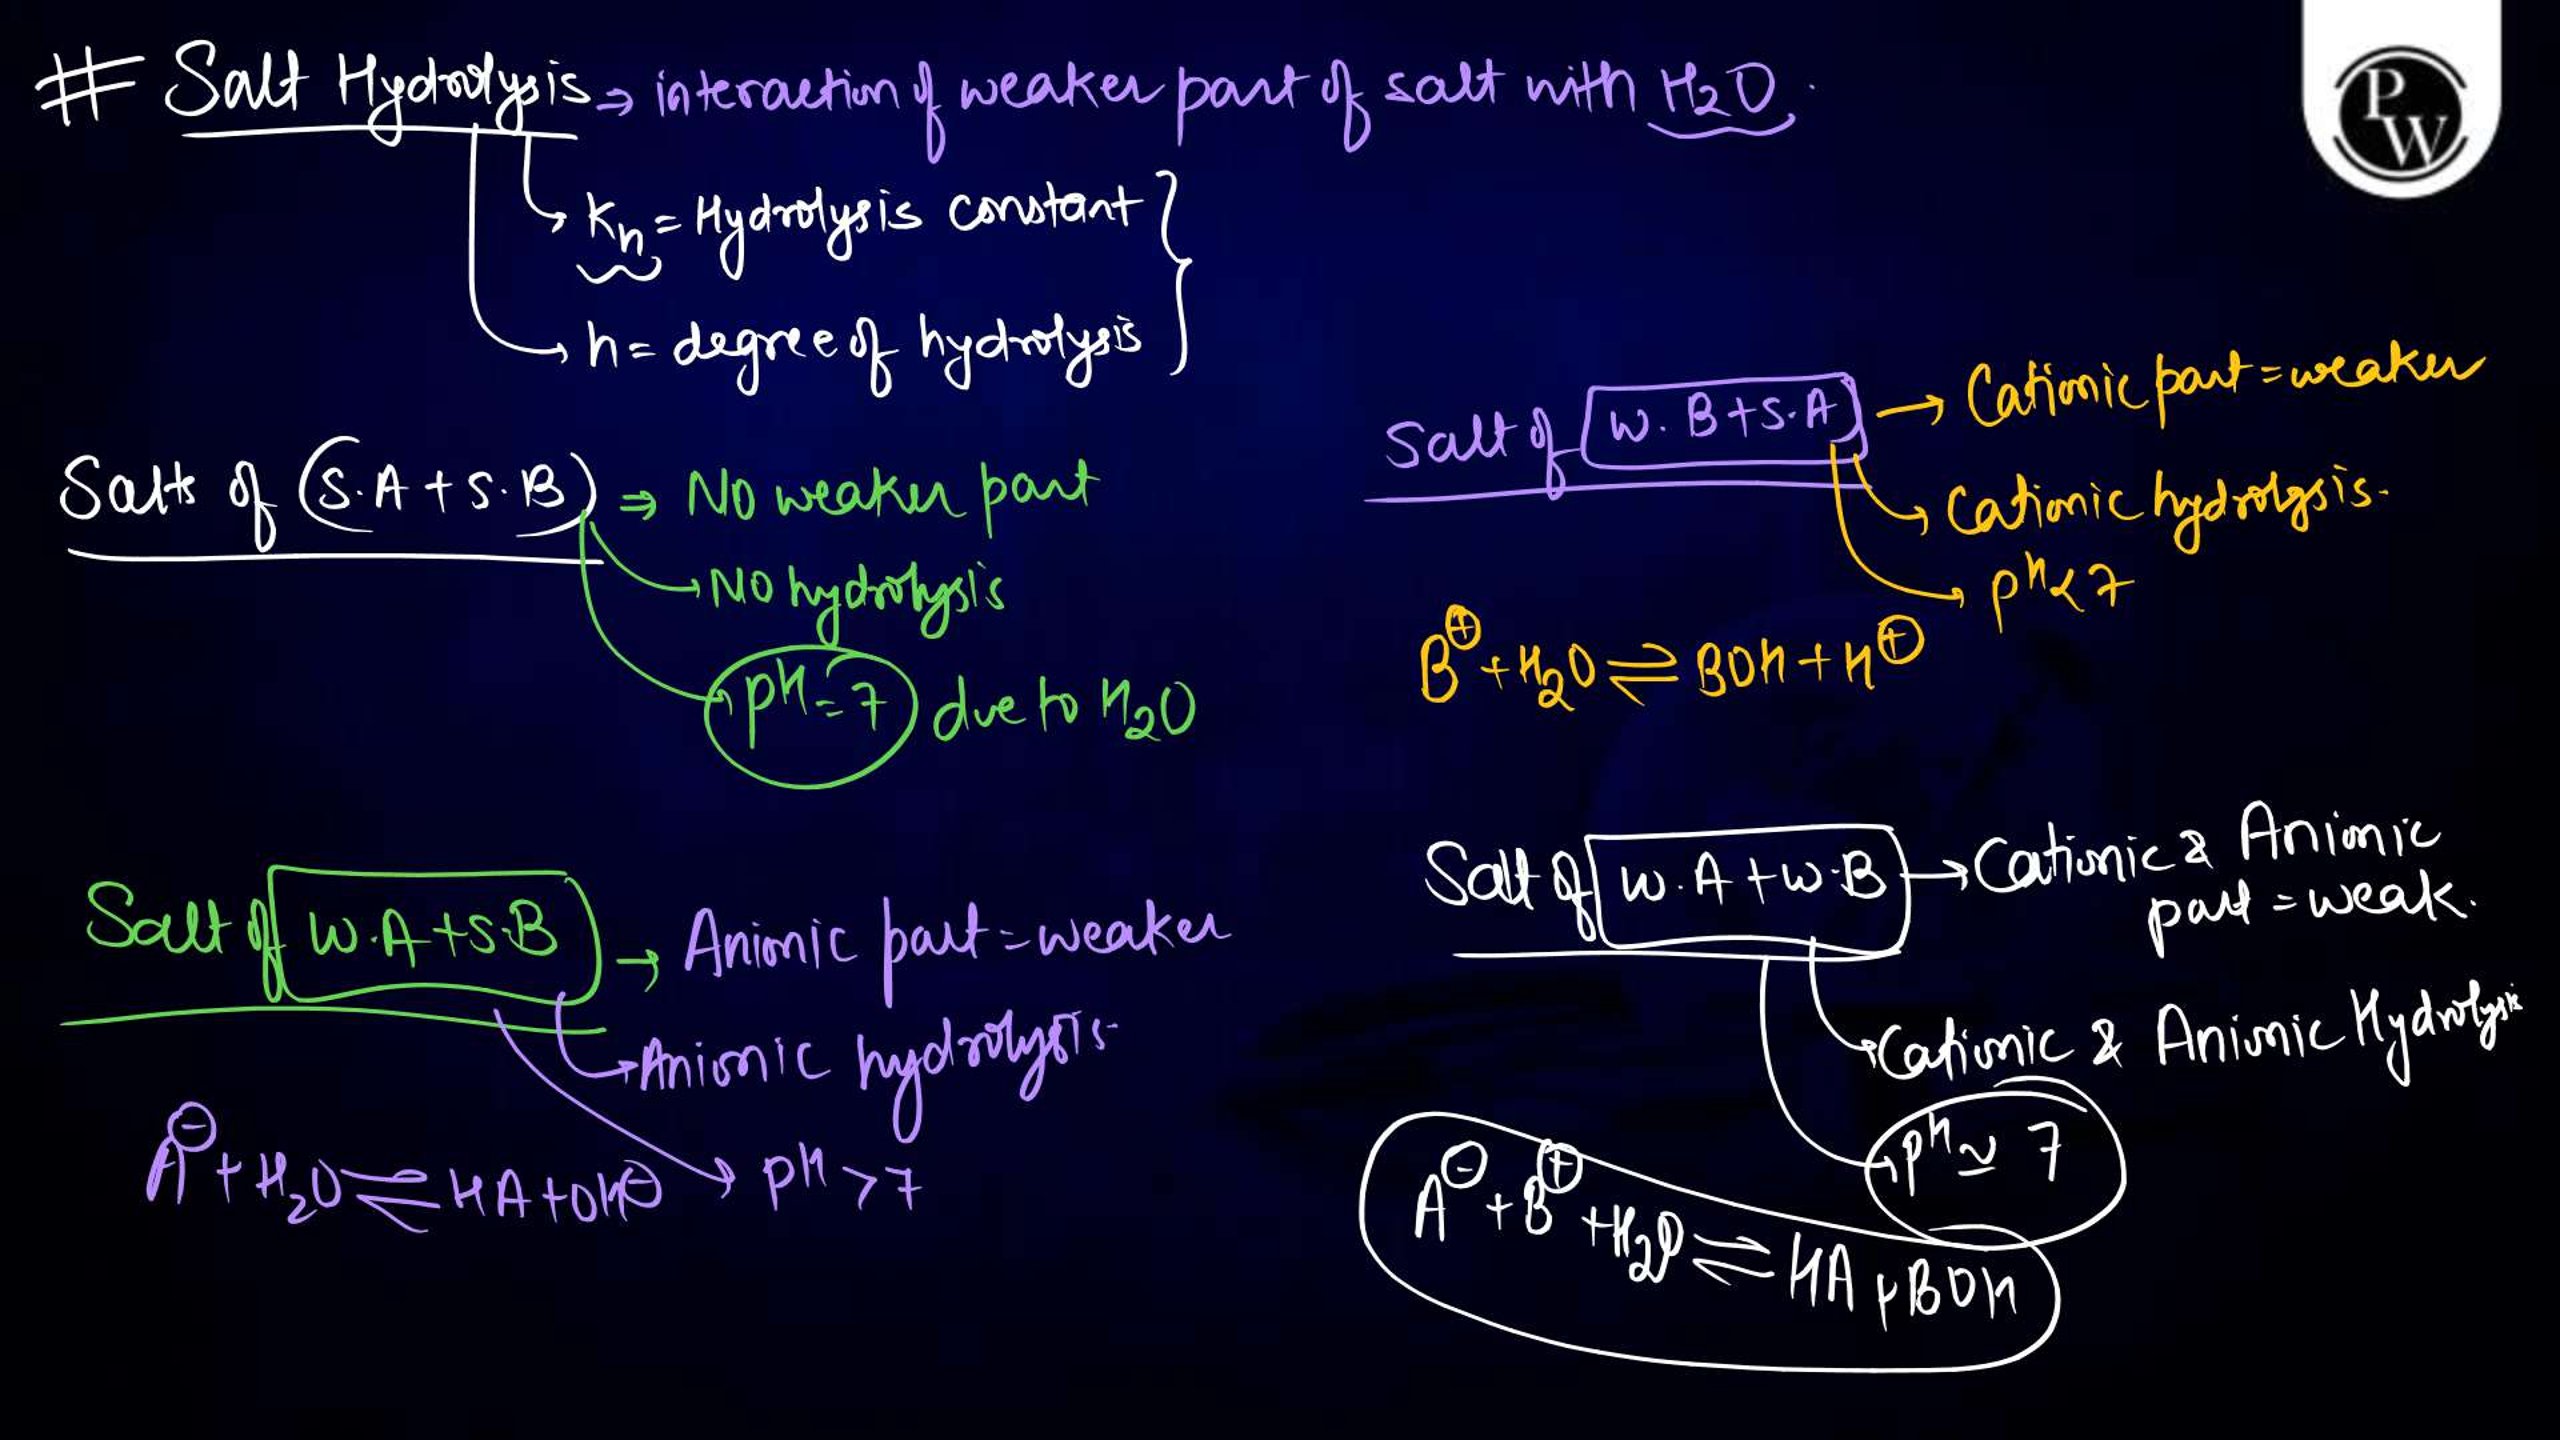 # Salt Hydrolysis ⇒ interaction of weaker part of salt with H₂O.
Kh = Hydrolysis constant
h = degree of hydrolysis
Salts of (S.A + S.B) ⇒ No weaker part
→ No hydrolysis
pH = 7 due to H₂O
Salt of W.A + S.B → Anionic part = weaker
→ Anionic hydrolysis
A⊖ + H₂O ⇌ HA + OH⊖
→ pH > 7
Salt of W.B + S.A → Cationic part = weaker
→ Cationic hydrolysis.
→ pH < 7
B⊕ + H₂O ⇌ BOH + H⊕
Salt of W.A + W.B → Cationic & Anionic
part = weak.
→ Cationic & Anionic Hydrolysis
→ pH ≃ 7
A⊖ + B⊕ + H₂O ⇌ HA + BOH
PW